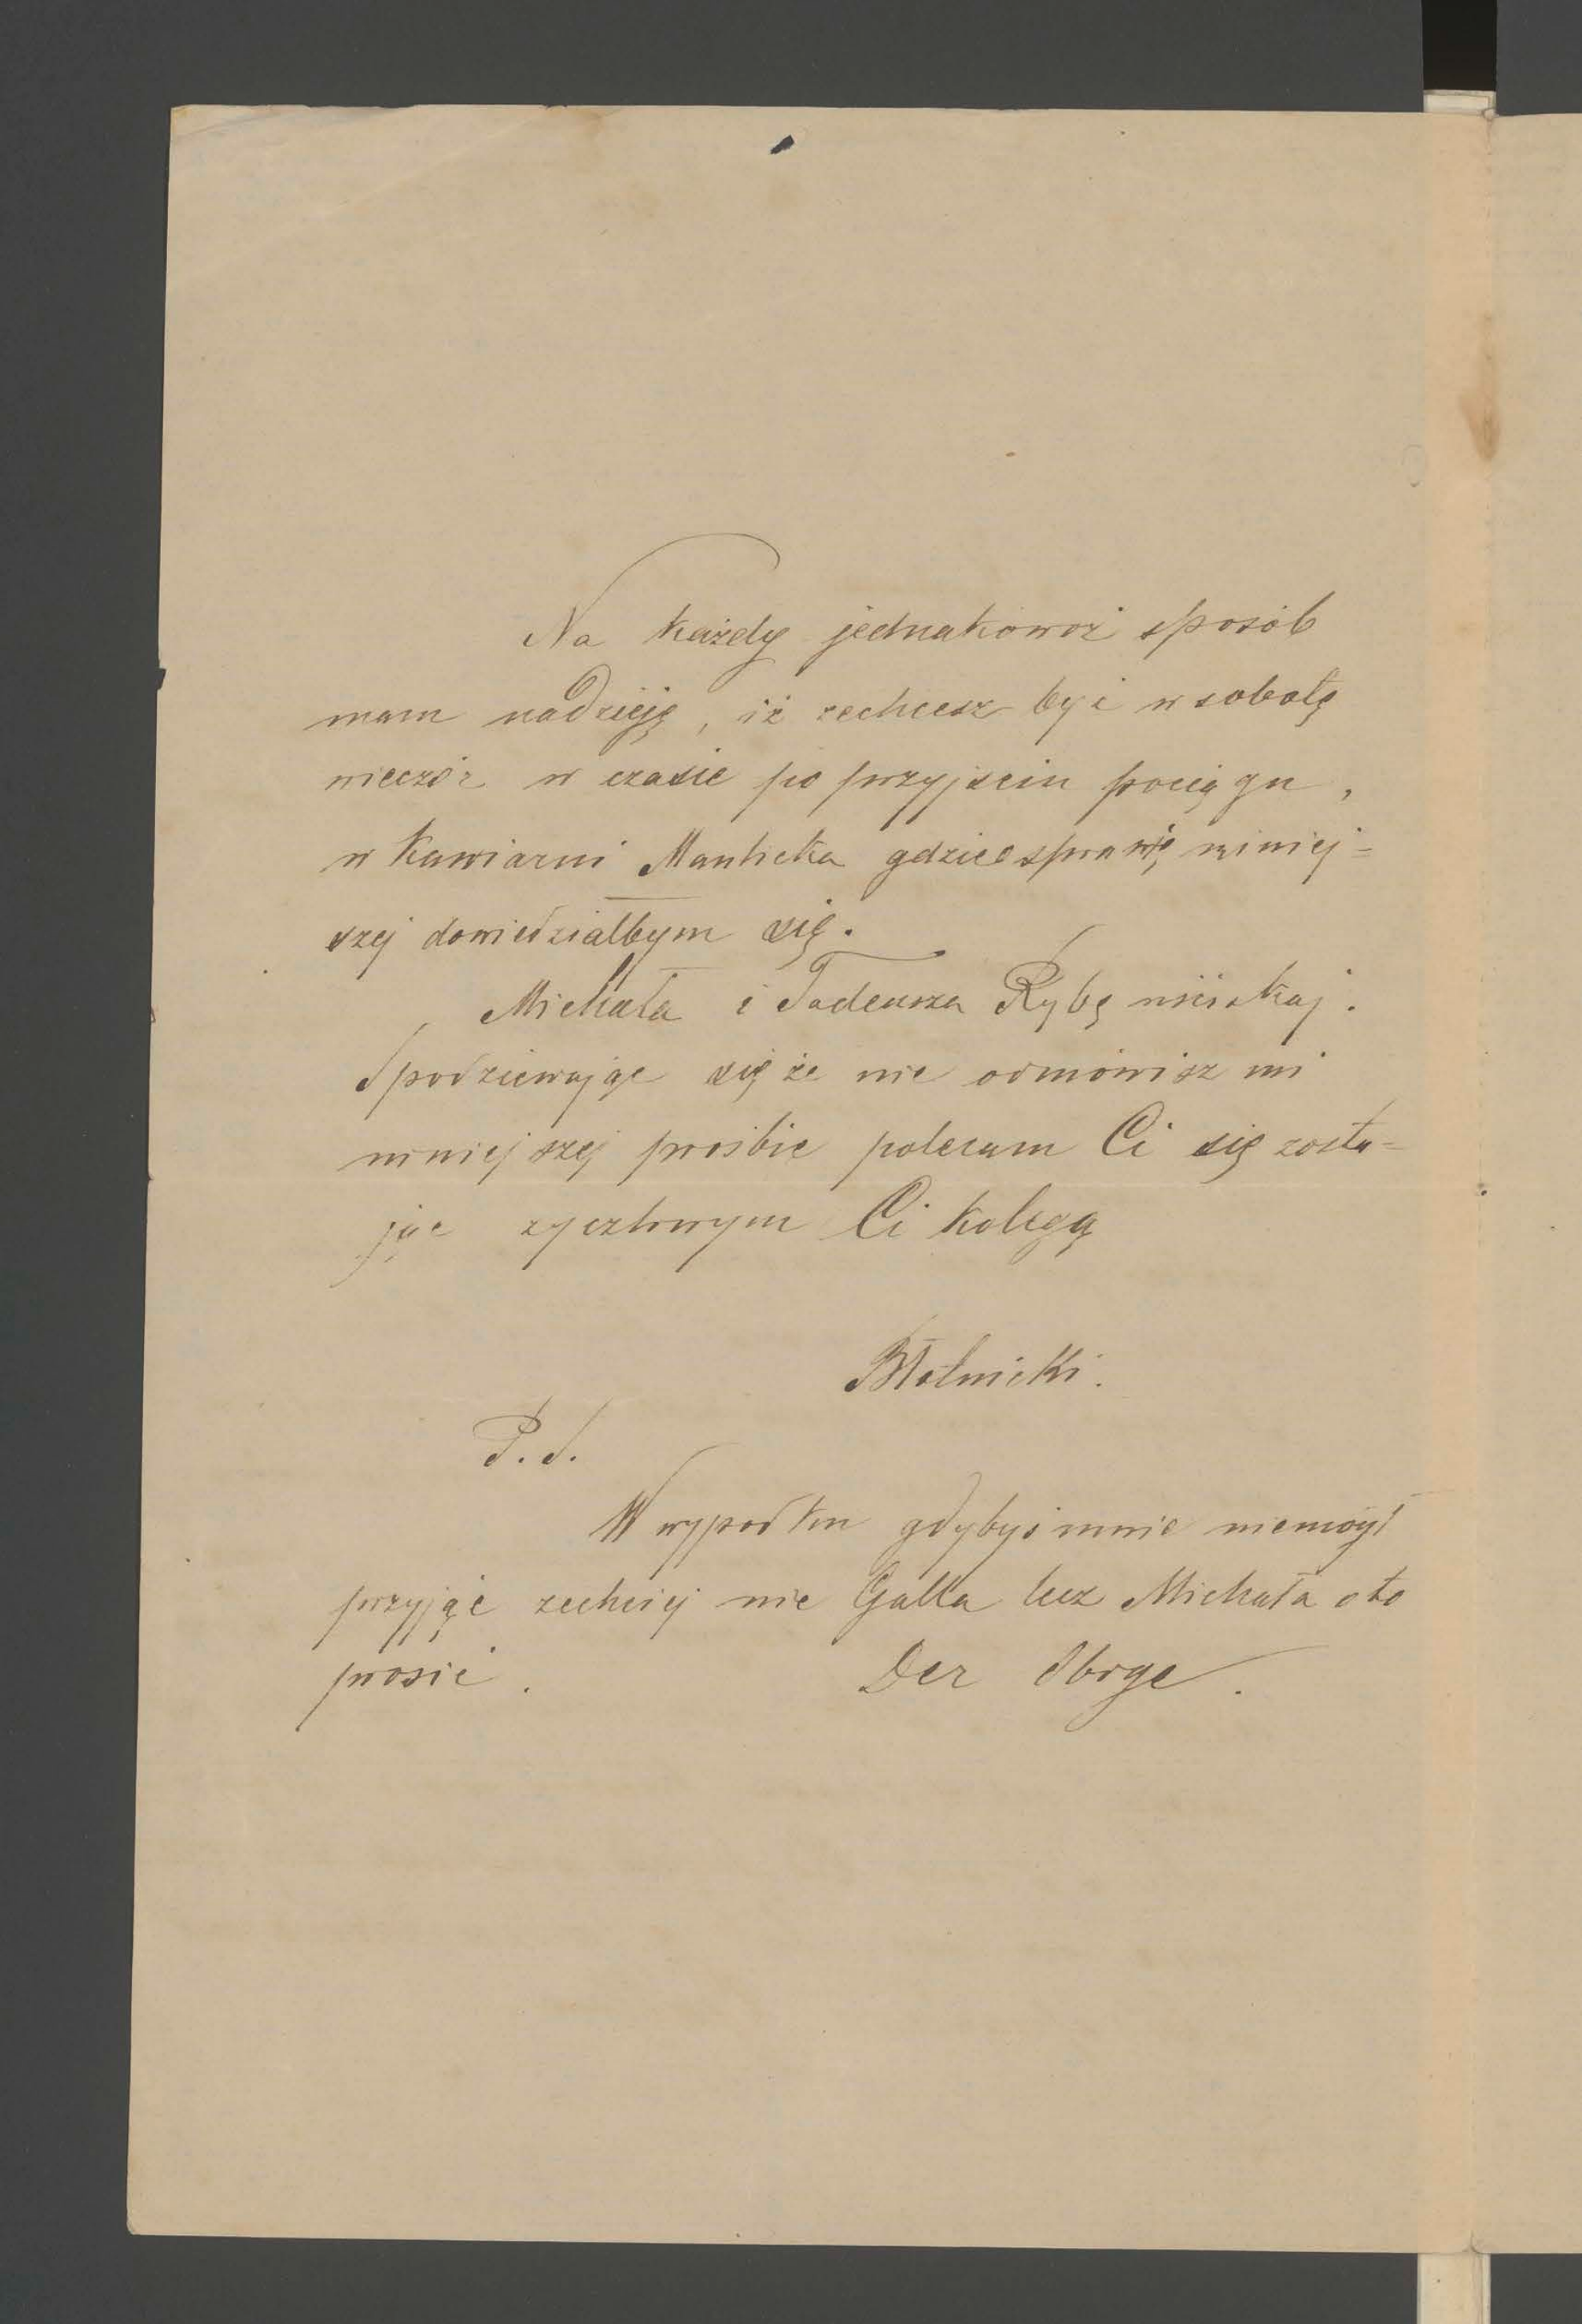 Na każdy jednakowoż sposób
mam nadzieję, iż zechcesz być w sobotę
wieczór w czasie po przyjściu pociągu,
w kawiarni gdzie o sprawie niniej=
szej dowiedziałbym się.
Michała i Tadeusza Rybę uściskaj.
Spodziewając się że nie odmówisz mi
niniejszej prośbie polecam Ci się zosta=
jąc życzliwym Ci kolegą
P.S.
W wypadku gdybyś mnie niemógł
przyjąć zechciej nie Galla lecz Michała oto
prosić. Der Obrge.